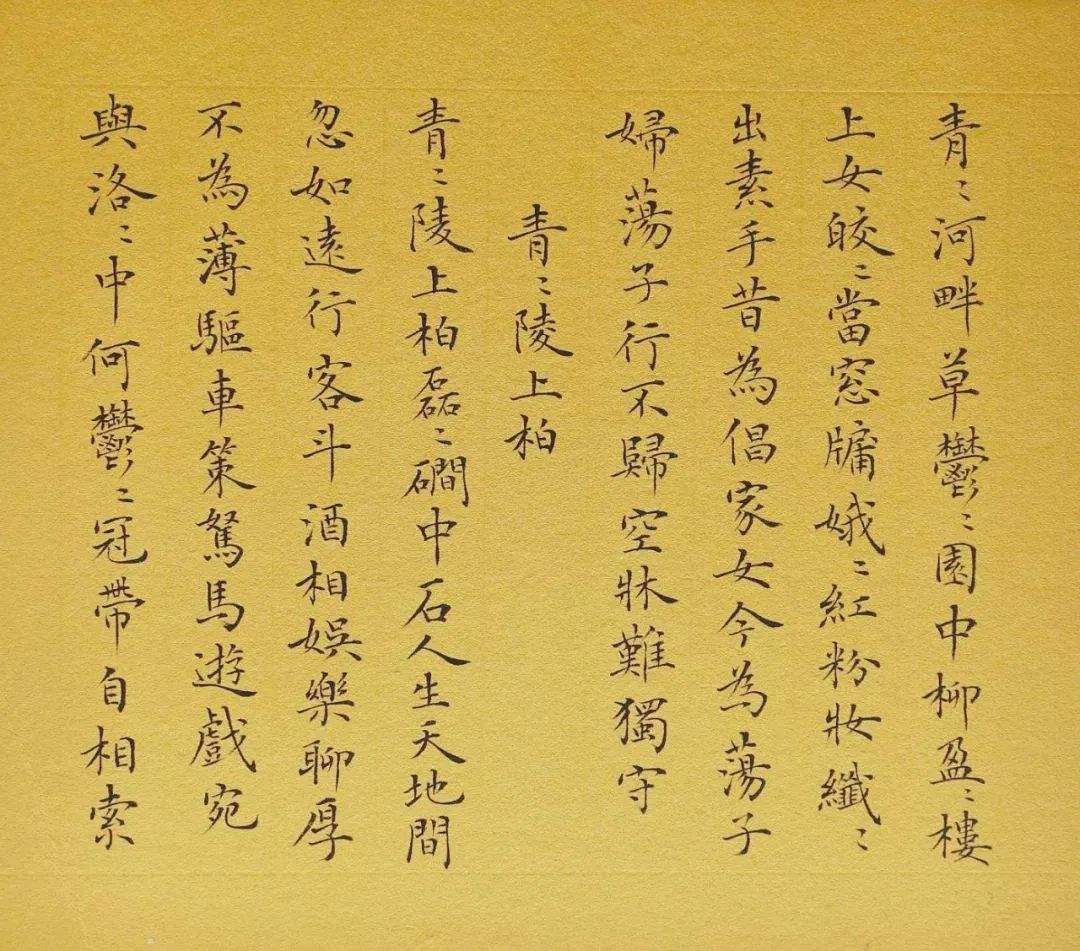 青〻河畔草鬱〻園中柳盈〻樓
上女皎〻當窓牖娥〻紅粉妝纖〻
出素手昔為倡家女今為蕩子
婦蕩子行不歸空牀難獨守
青〻陵上柏
青〻陵上柏磊〻磵中石人生天地間
忽如遠行客斗酒相娛樂聊厚
不為薄驅車策駑馬遊戲宛
與洛〻中何鬱〻冠帶自相索